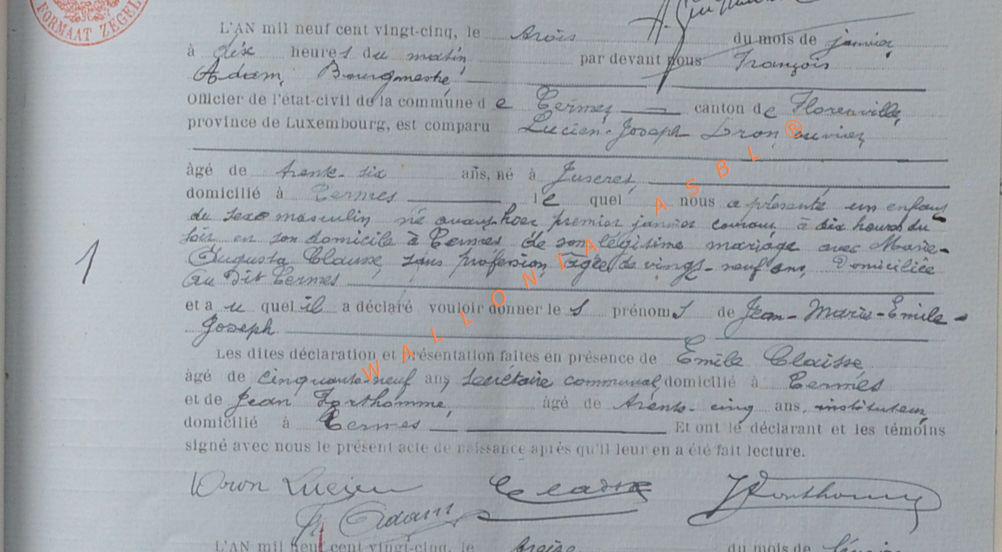 FORMAAT ZEGEL
L'AN mil neuf cent vingt-cinq, le trois du mois de janvier
à dix heures du matin par devant nous François
Adam, Bourgmestre,
Officier de l'état-civil de la commune de Termes canton de Florenville,
province de Luxembourg, est comparu Lucien-Joseph Dron, ouvrier,
âgé de trente-six ans, né à Juseret,
domicilié à Termes lequel nous a présenté un enfant
du sexe masculin né avant-hier premier janvier courant à dix heures du
soir en son domicile à Termes de son légitime mariage avec Marie-
Augusta Claisse, sans profession, âgée de vingt-neuf ans, domiciliée
au dit Termes
1
et au quel il a déclaré vouloir donner les prénoms de Jean-Marie-Emile-
Joseph
Les dites déclaration et présentation faites en présence de Emile Claisse
âgé de cinquante-neuf ans, secrétaire communal domicilié à Termes
et de Jean Forthomme, âgé de trente-cinq ans, instituteur,
domicilié à Termes Et ont le déclarant et les témoins
signé avec nous le présent acte de naissance après qu'il leur en a été fait lecture.
Dron Lucien Claisse JForthomme
Fr Adam
WALLONIA ASBL ®
L'AN mil neuf cent vingt-cinq, le treize du mois de